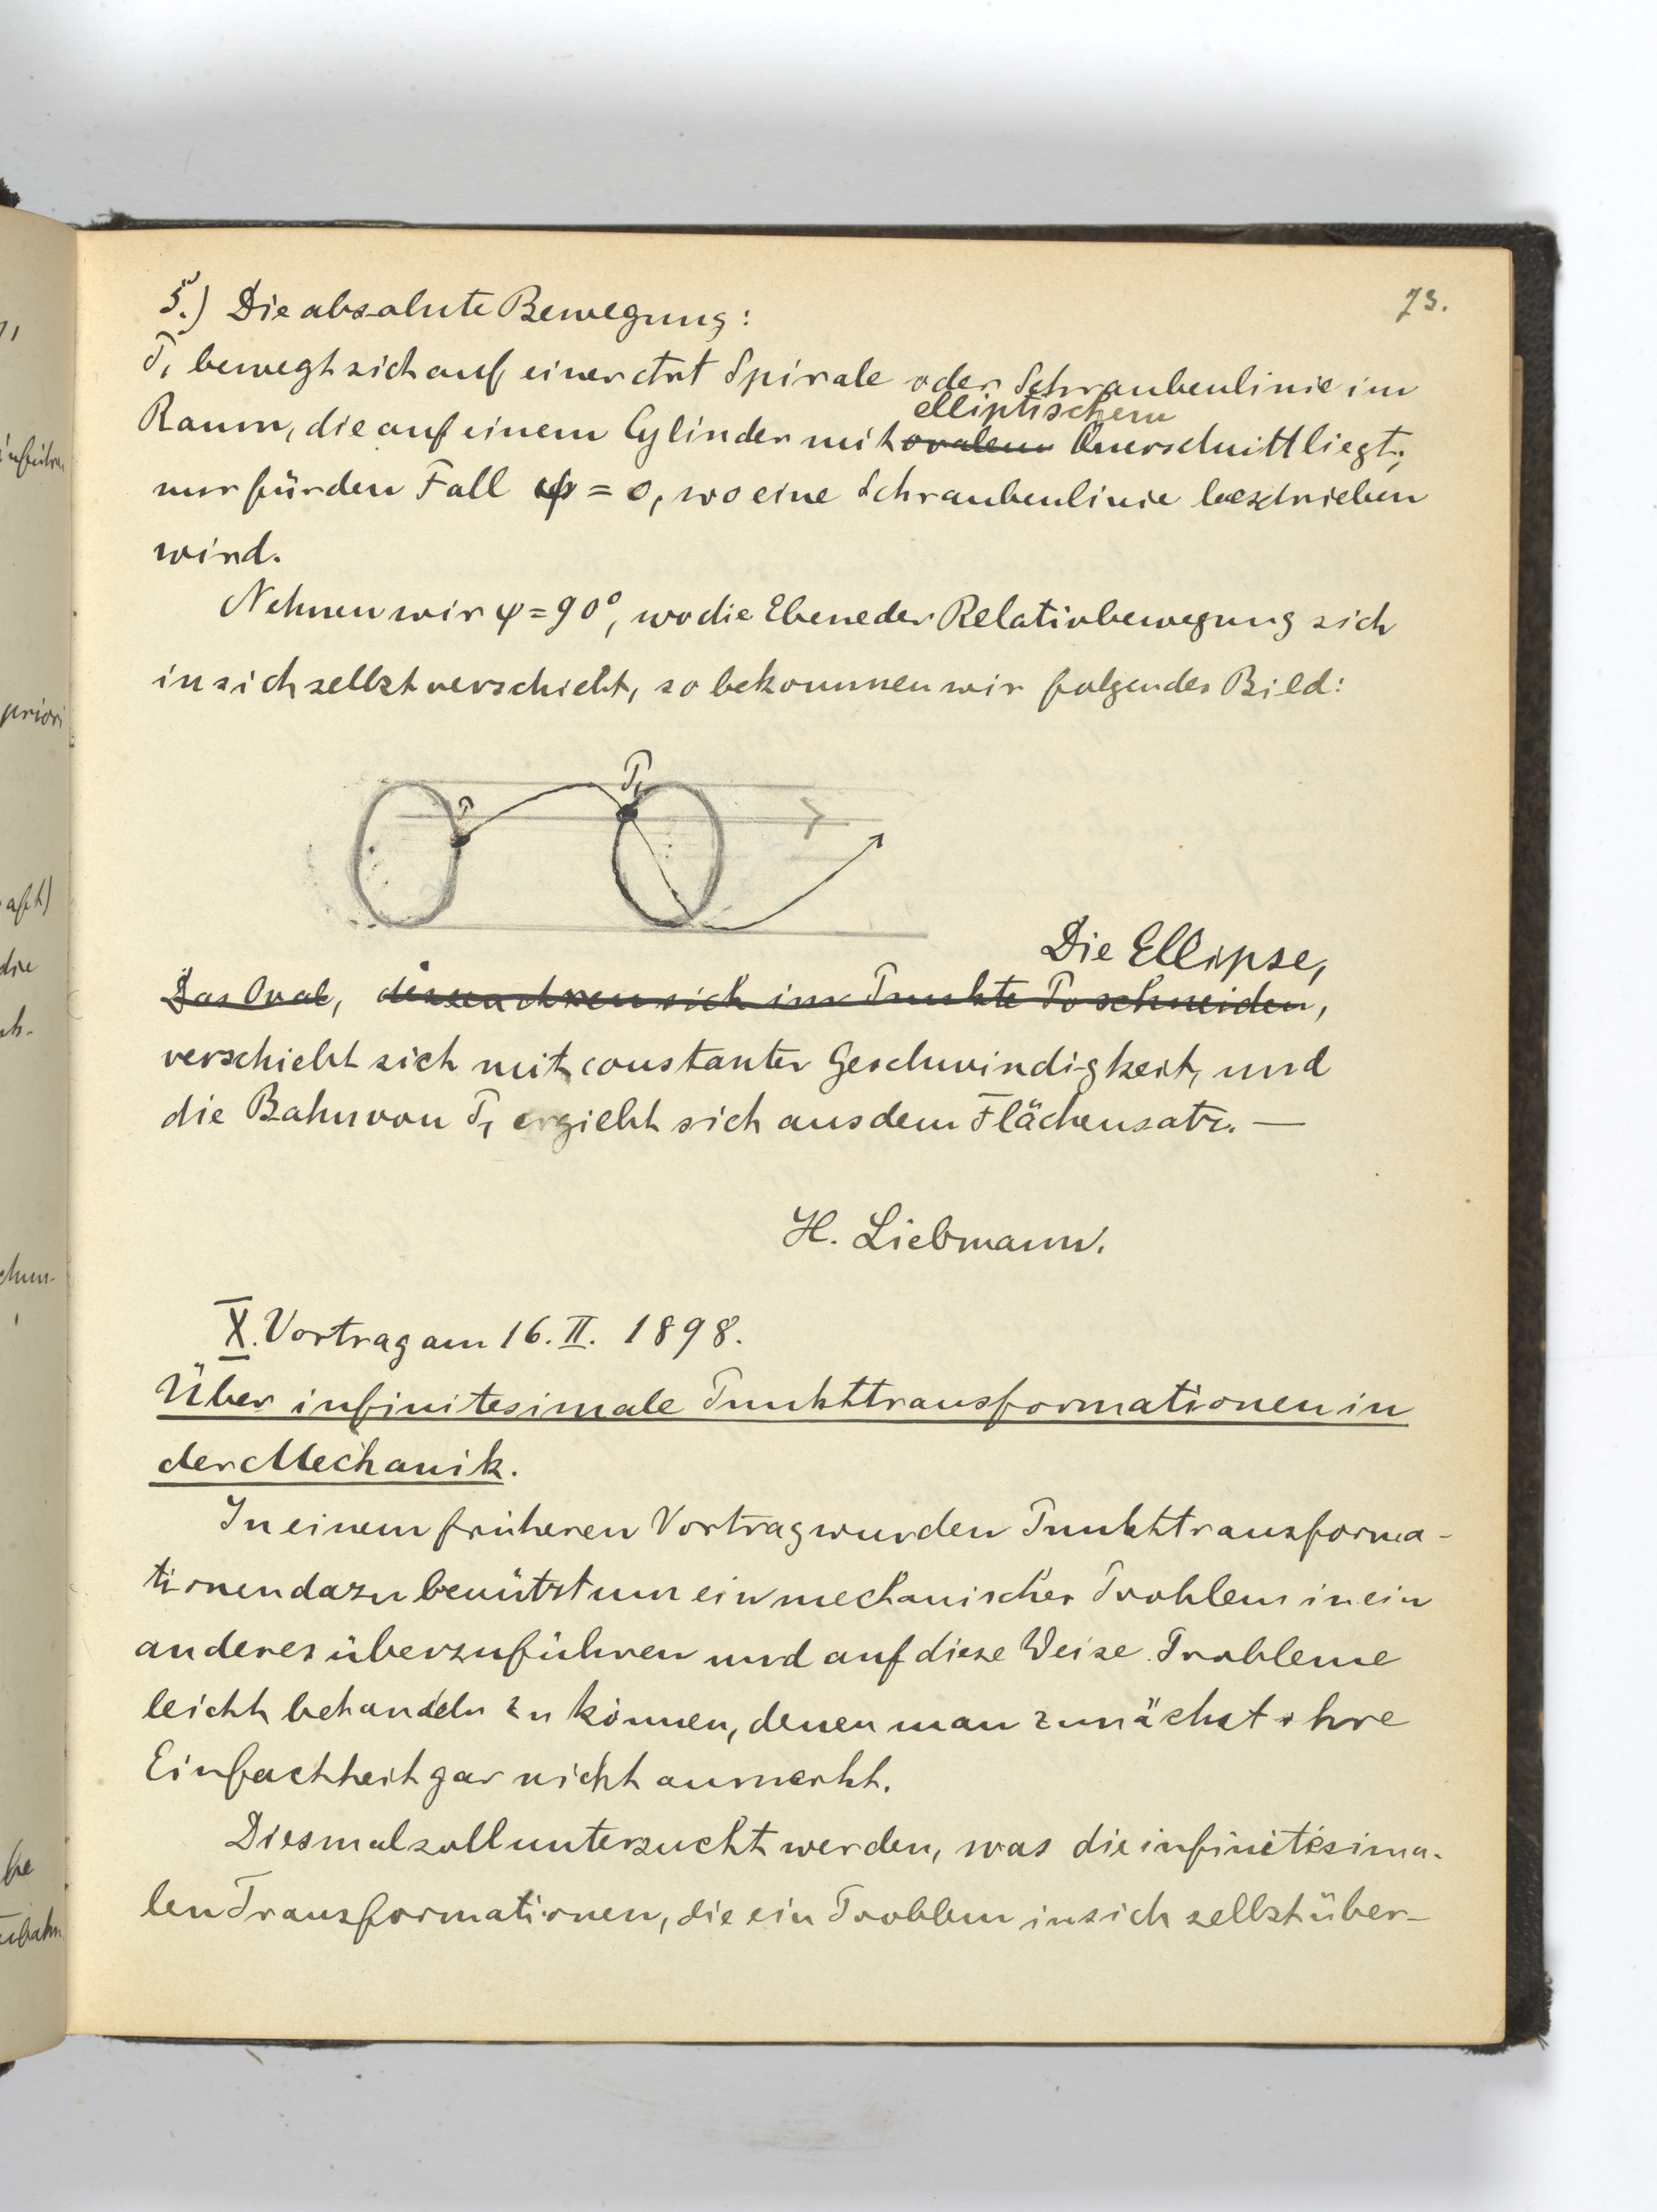 73.
5.) Die absolute Bewegung:
P₁ bewegt sich auf einer Art Spirale oder Schraubenlinie im
elliptischem
Raum, die auf einem Cylinder mit ovalem Querschnitt liegt;
nur für den Fall φ = 0, wo eine Schraubenlinie beschrieben
wird.
Nehmen wir φ = 90°, wo die Ebene der Relativbewegung sich
in sich selbst verschiebt, so bekommen wir folgendes Bild:
P₁
P
Die Ellipse,
Das Oval, dessen Axen sich im Punkte P₀ schneiden,
verschiebt sich mit constanter Geschwindigkeit, und
die Bahn von P₁ ergiebt sich aus dem Flächensatz. —
H. Liebmann.
X. Vortrag am 16. II. 1898.
Über infinitesimale Punkttransformationen in
der Mechanik.
In einem früheren Vortrag wurden Punkttransforma-
tionen dazu benützt um ein mechanisches Problem in ein
anderes überzuführen und auf diese Weise Probleme
leicht behandeln zu können, denen man zunächst ihre
Einfachheit gar nicht anmerkt.
Diesmal soll untersucht werden, was die infinitesima-
len Transformationen, die ein Problem in sich selbst über-
priori